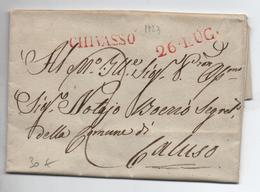 1827
CHIVASSO
26 LUG.
Al M.to Ill.re Sig.r P.ron
Sig.r Notajo Boerio Segret.
della Comune di
Caluso
30